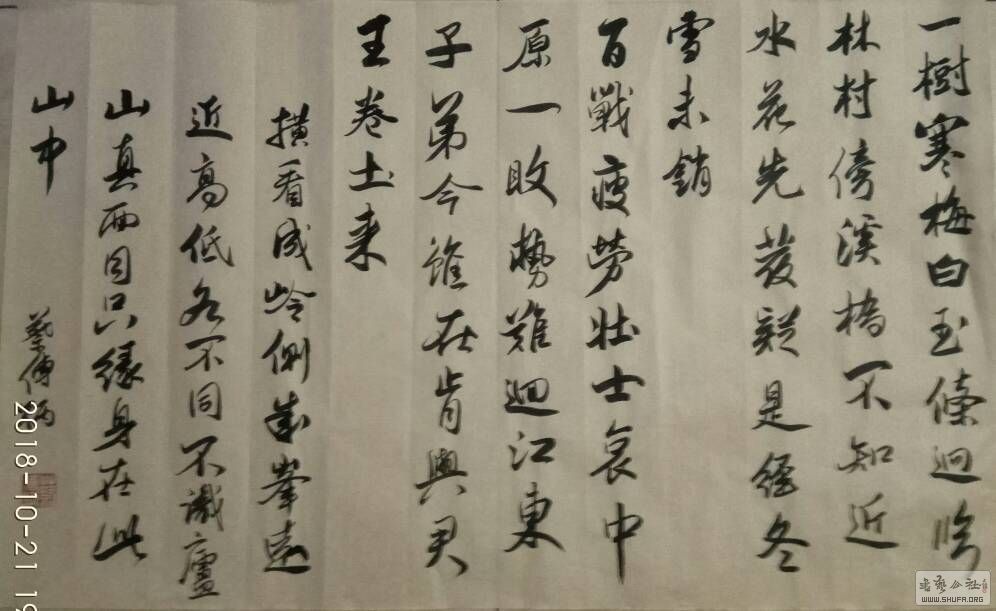 一樹寒梅白玉條迥臨
林村傍溪橋不知近
水花先發疑是經冬
雪未銷
百戰疲勞壯士哀中
原一敗勢難迴江東
子弟今雖在肯與君
王卷土来
横看成岭側成峯遠
近高低各不同不識廬
山真面目只緣身在此
山中
2018-10-21 19
WWW.SHUFA.ORG